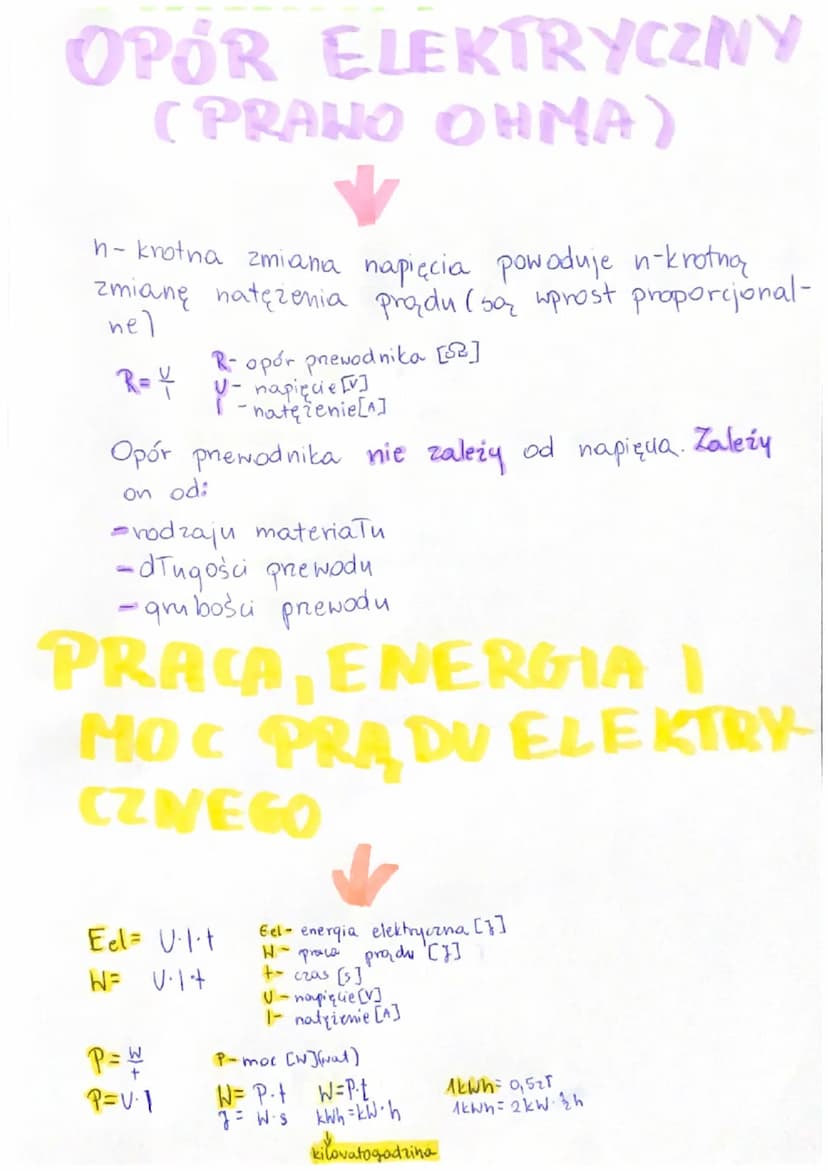 OPÓR ELEKTRYCZNY
(PRAWO OHMA)
n-krotna zmiana napięcia powoduje n-krotną
zmianę natężenia prądu (są wprost proporcjonal-
ne)
R=U/I
R- opór przewodnika [Ω]
U- napięcie [V]
I - natężenie [A]
Opór przewodnika nie zależy od napięcia. Zależy
on od:
-rodzaju materiału
-długości przewodu
-grubości przewodu
PRACA, ENERGIA I
MOC PRĄDU ELEKTRY-
CZNEGO
Eel= U·I·t
W= U·I·t
Eel- energia elektryczna [J]
W- praca prądu [J]
t- czas [s]
U- napięcie [V]
I- natężenie [A]
P=W/t
P=U·I
P-moc [W](wat)
W= P·t W=P·t
J= W·s kWh=kW·h
kilowatogodzina
1kWh= 0,5zł
1kWh= 2kW·½h